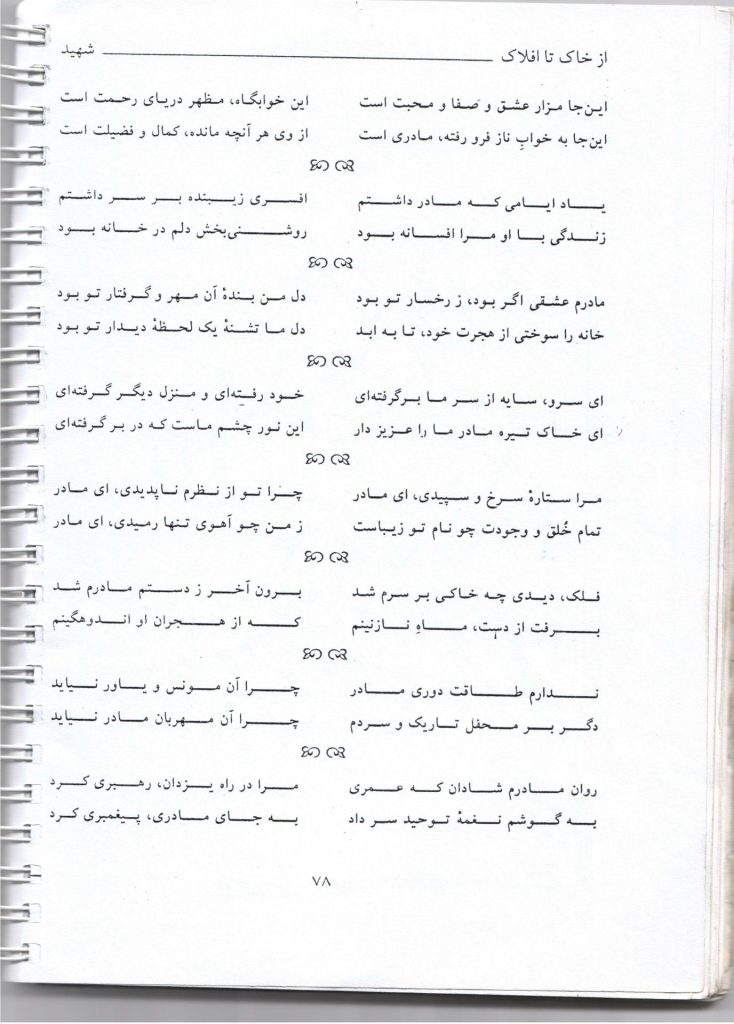 از خاک تا افلاک شهید
این‌جا مزار عشق و صفا و محبت است این خوابگاه، مظهر دریای رحمت است
این‌جا به خوابِ ناز فرو رفته، مادری است از وی هر آنچه مانده، کمال و فضیلت است
یاد ایامی که مادر داشتم افسری زیبنده بر سر داشتم
زندگی با او مرا افسانه بود روشنی‌بخش دلم در خانه بود
مادرم عشقی اگر بود، ز رخسار تو بود دل من بندهٔ آن مهر و گرفتار تو بود
خانه را سوختی از هجرت خود، تا به ابد دل ما تشنهٔ یک لحظهٔ دیدار تو بود
ای سرو، سایه از سر ما برگرفته‌ای خود رفته‌ای و منزل دیگر گرفته‌ای
ای خاک تیره مادر ما را عزیز دار این نور چشم ماست که در بر گرفته‌ای
مرا ستارهٔ سرخ و سپیدی، ای مادر چرا تو از نظرم ناپدیدی، ای مادر
تمام خُلق و وجودت چو نام تو زیباست ز من چو آهوی تنها رمیدی، ای مادر
فلک، دیدی چه خاکی بر سرم شد برون آخر ز دستم مادرم شد
برفت از دست، ماهِ نازنینم که از هجران او اندوهگینم
ندارم طاقت دوری مادر چرا آن مونس و یاور نیاید
دگر بر محفل تاریک و سردم چرا آن مهربان مادر نیاید
روان مادرم شادان که عمری مرا در راه یزدان، رهبری کرد
به گوشم نغمهٔ توحید سر داد به جای مادری، پیغمبری کرد
۷۸